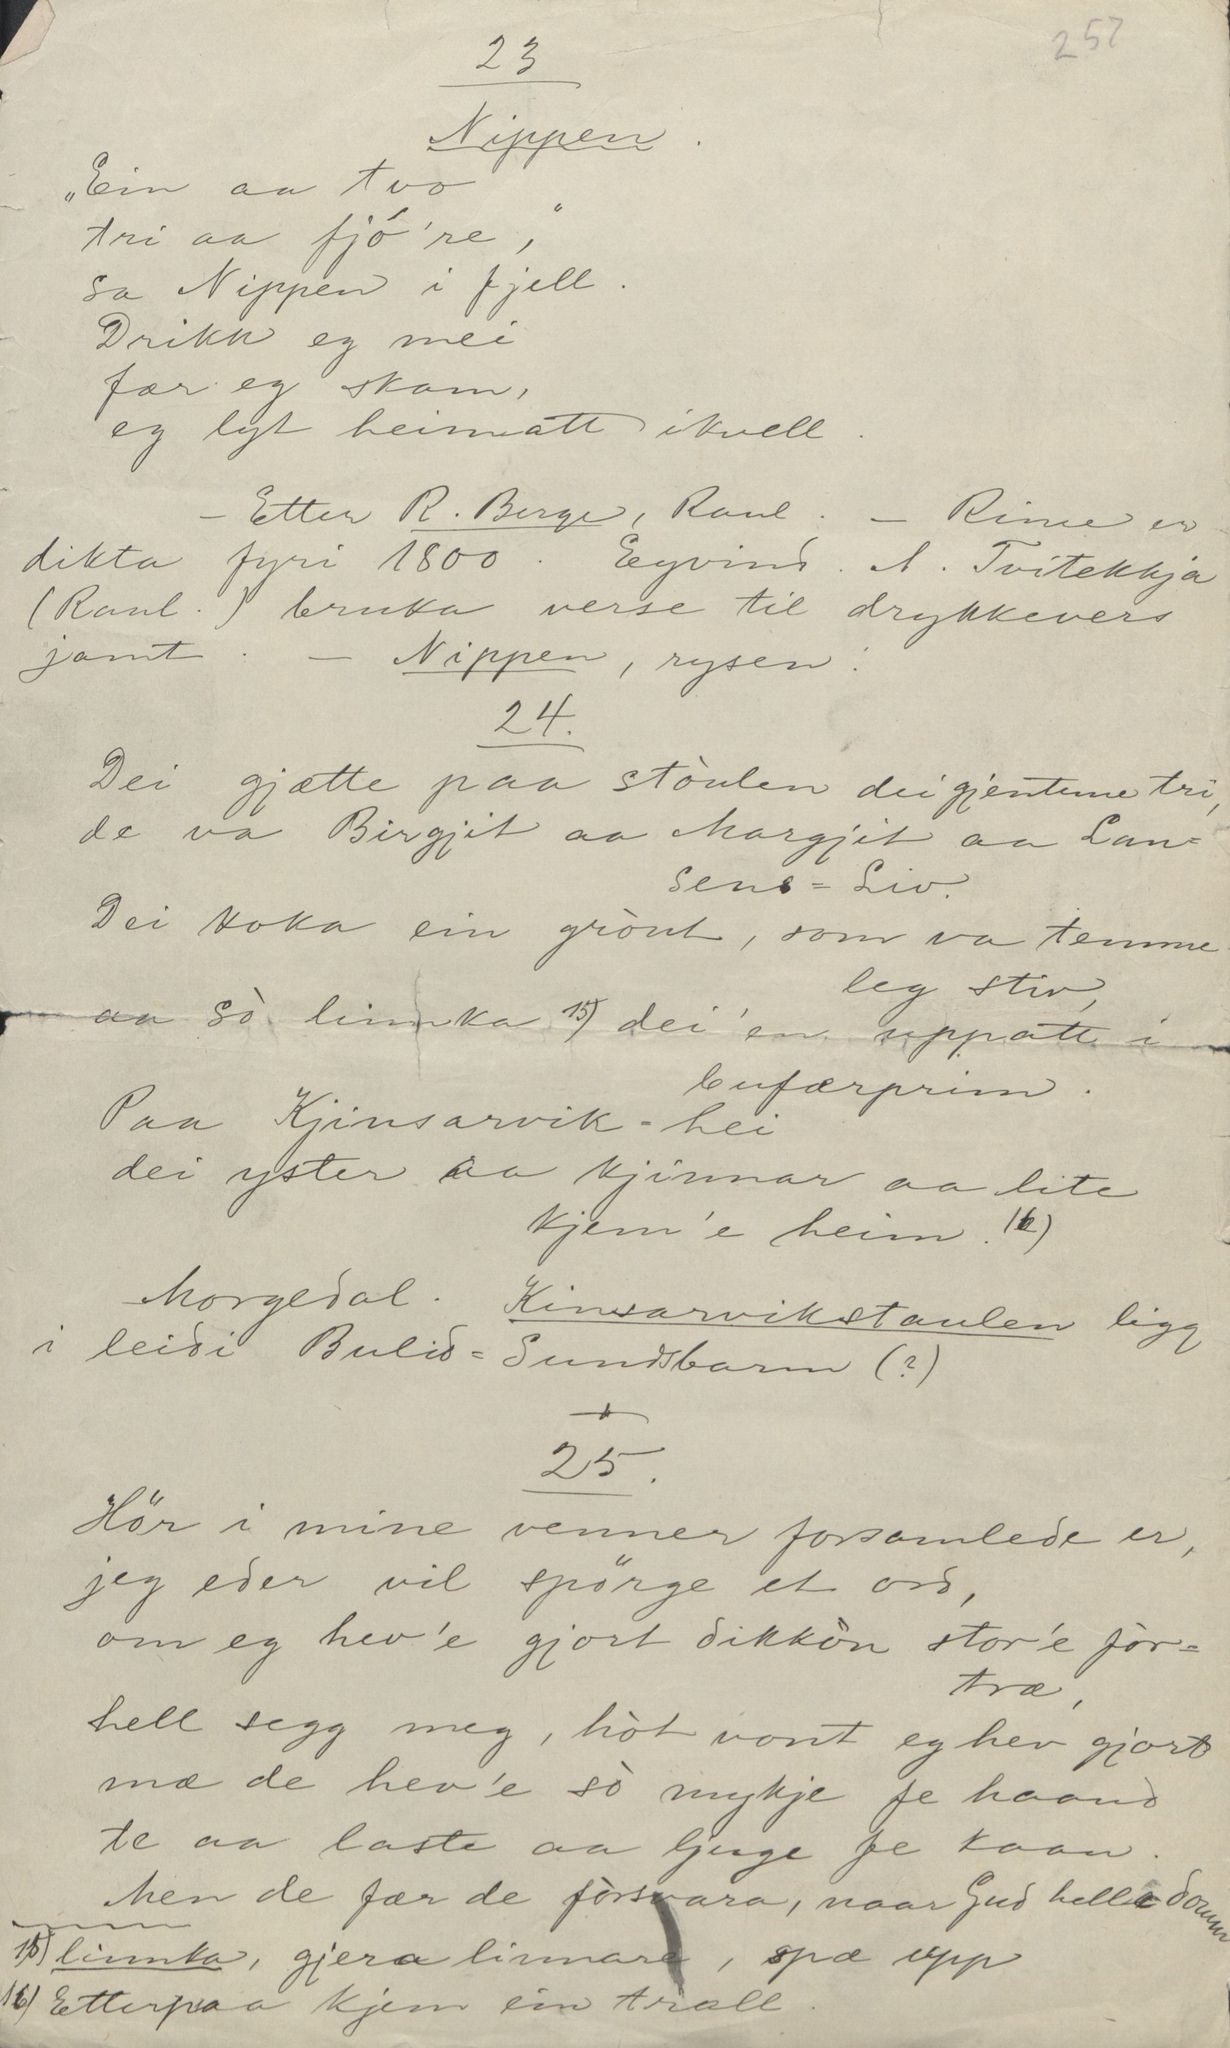 257
23
Nippen.
„Ein aa tvo
tri aa fjó're,"
sa Nippen i fjell.
Drikk eg mei
fær eg skam,
eg lyt heimatt ikvell.
- Etter R. Berge, Raul. - Rime er
dikta fyri 1800. Eyvind. A. Tvitekkja
(Raul.) bruka verse til drykkevers
jamt. - Nippen, rysen.
24.
Dei gjætte paa stòulen dei gjentune tri,
de va Birgjit aa Margjit aa Lau=
sens=Liv.
Dei koka ein gròut, som va temme
leg stiv,
aa sò linnka 15) dei 'en uppatt i
bufærprim.
Paa Kjinsarvik-hei
dei yster aa kjinnar aa lite
kjem'e heim. 16)
Morgedal. Kinsarvikstaulen ligg
i leidi Bulid=Sundsbarm (?)
25.
Hör i mine venner forsamlede er,
jeg eder vil spörge et ord,
om eg hev'e gjort dikkòn stor'e fòr=
træ,
hell segg meg, hòt vont eg hev gjort
mæ de hev'e sò mykje fe haand
te aa laste aa ljuge fe kaan.
Men de fær de fòrsvara, naar Gud helle domm
15) linnka, gjera linnare, spæ upp
16) Etterpaa kjem ein trall.